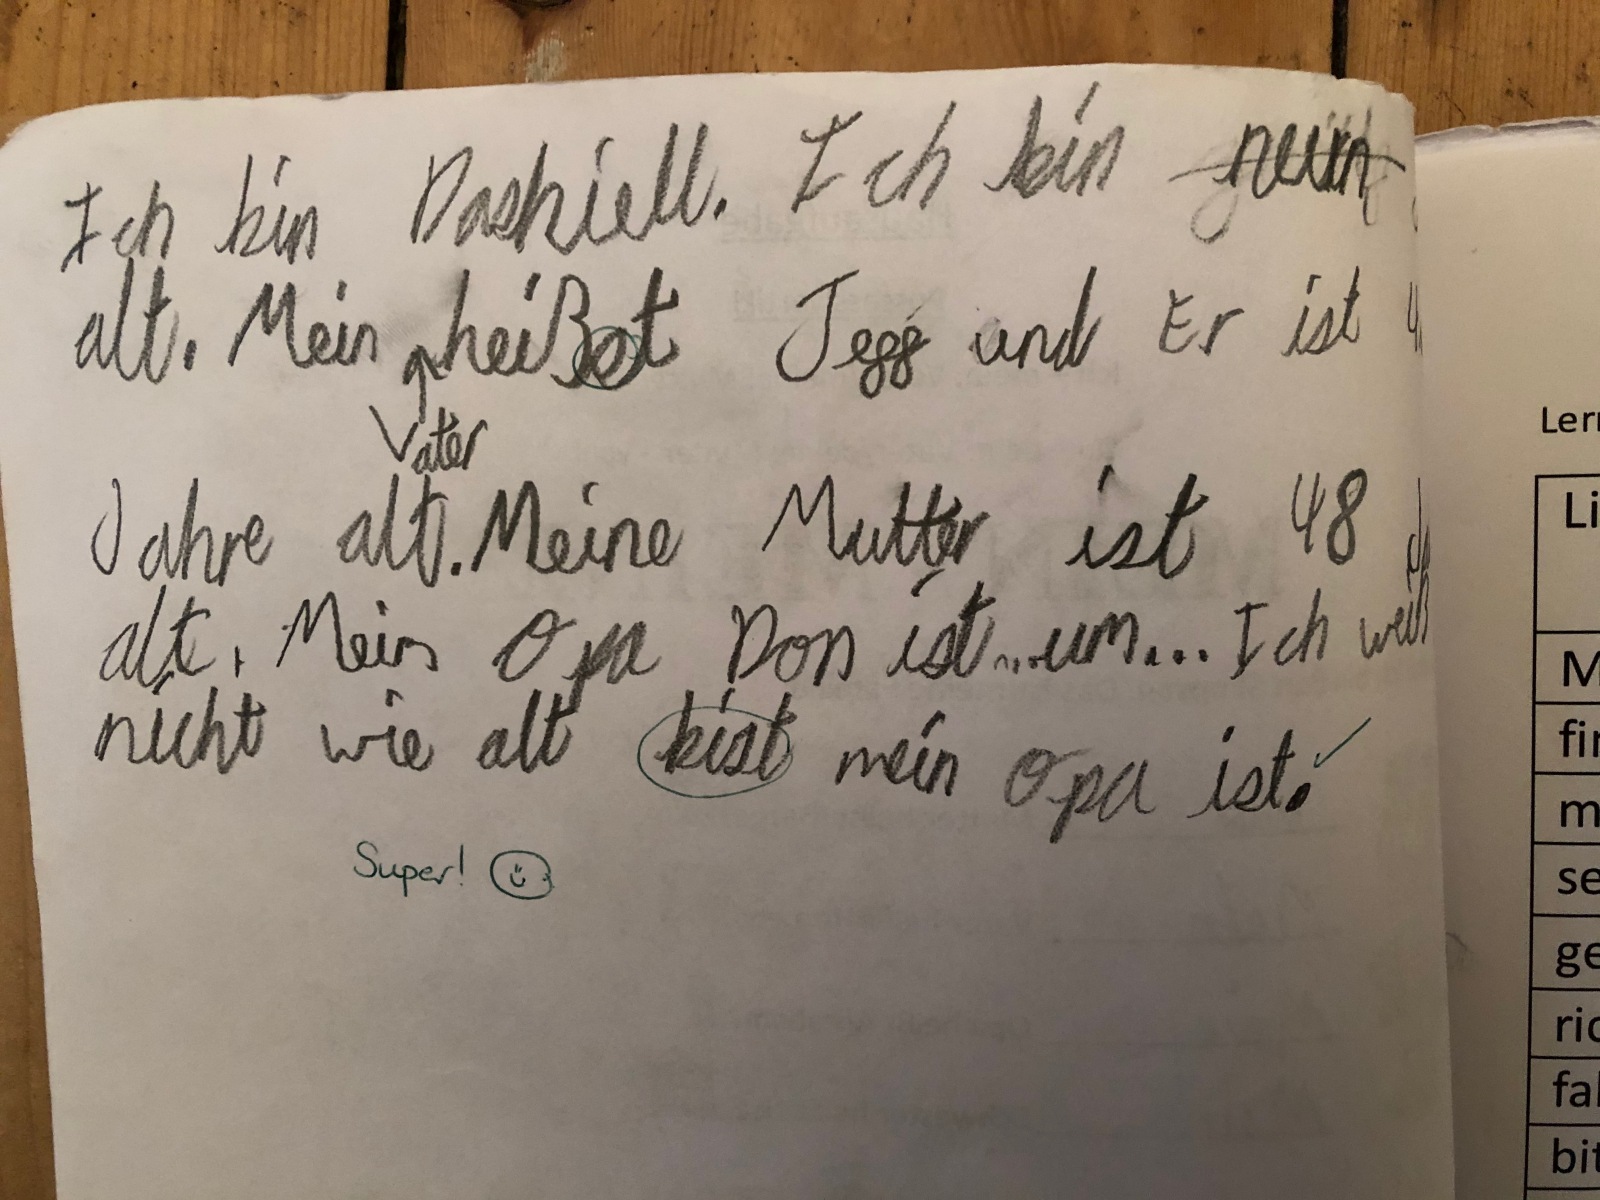 Ich bin Dashiell. Ich bin neun
alt. Mein heißet Jegg und Er ist
Vater
Jahre alt. Meine Mutter ist 48
alt. Mein Opa Don ist...um... Ich weiß
nicht wie alt bist mein Opa ist.
Super!
Lern
Li
M
fin
m
se
ge
ric
fal
bit